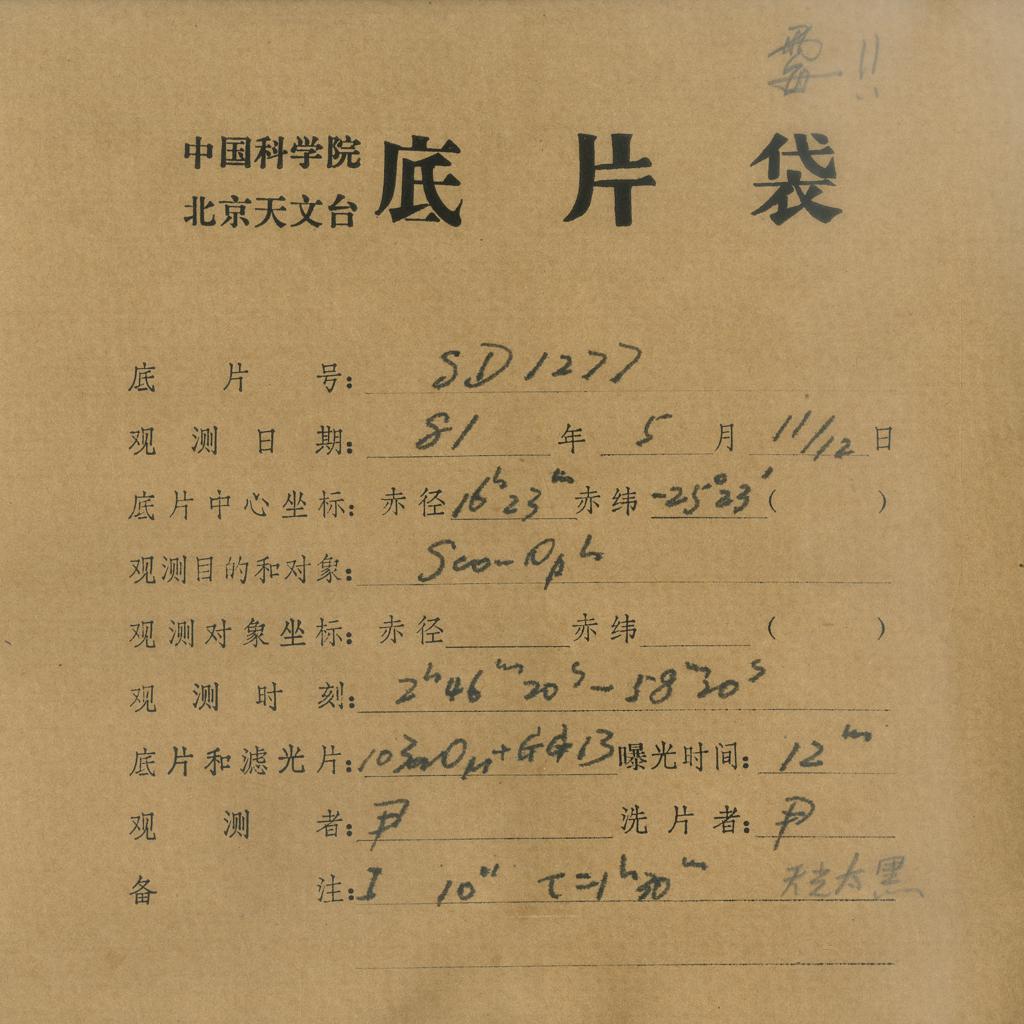 霉!!
中国科学院
北京天文台
底片袋
底片号: SD1277
观测日期: 81年5月11/12日
底片中心坐标: 赤径16ʰ23ᵐ赤纬-25°23′( )
观测目的和对象: Sco-Oph
观测对象坐标: 赤径 赤纬 ( )
观测时刻: 2ʰ46ᵐ20ˢ-58ᵐ20ˢ
底片和滤光片: +GG13 曝光时间: 12ᵐ
观测者: 尹 洗片者: 尹
备注: I 10" τ=1ʰ30ᵐ 天光太黑